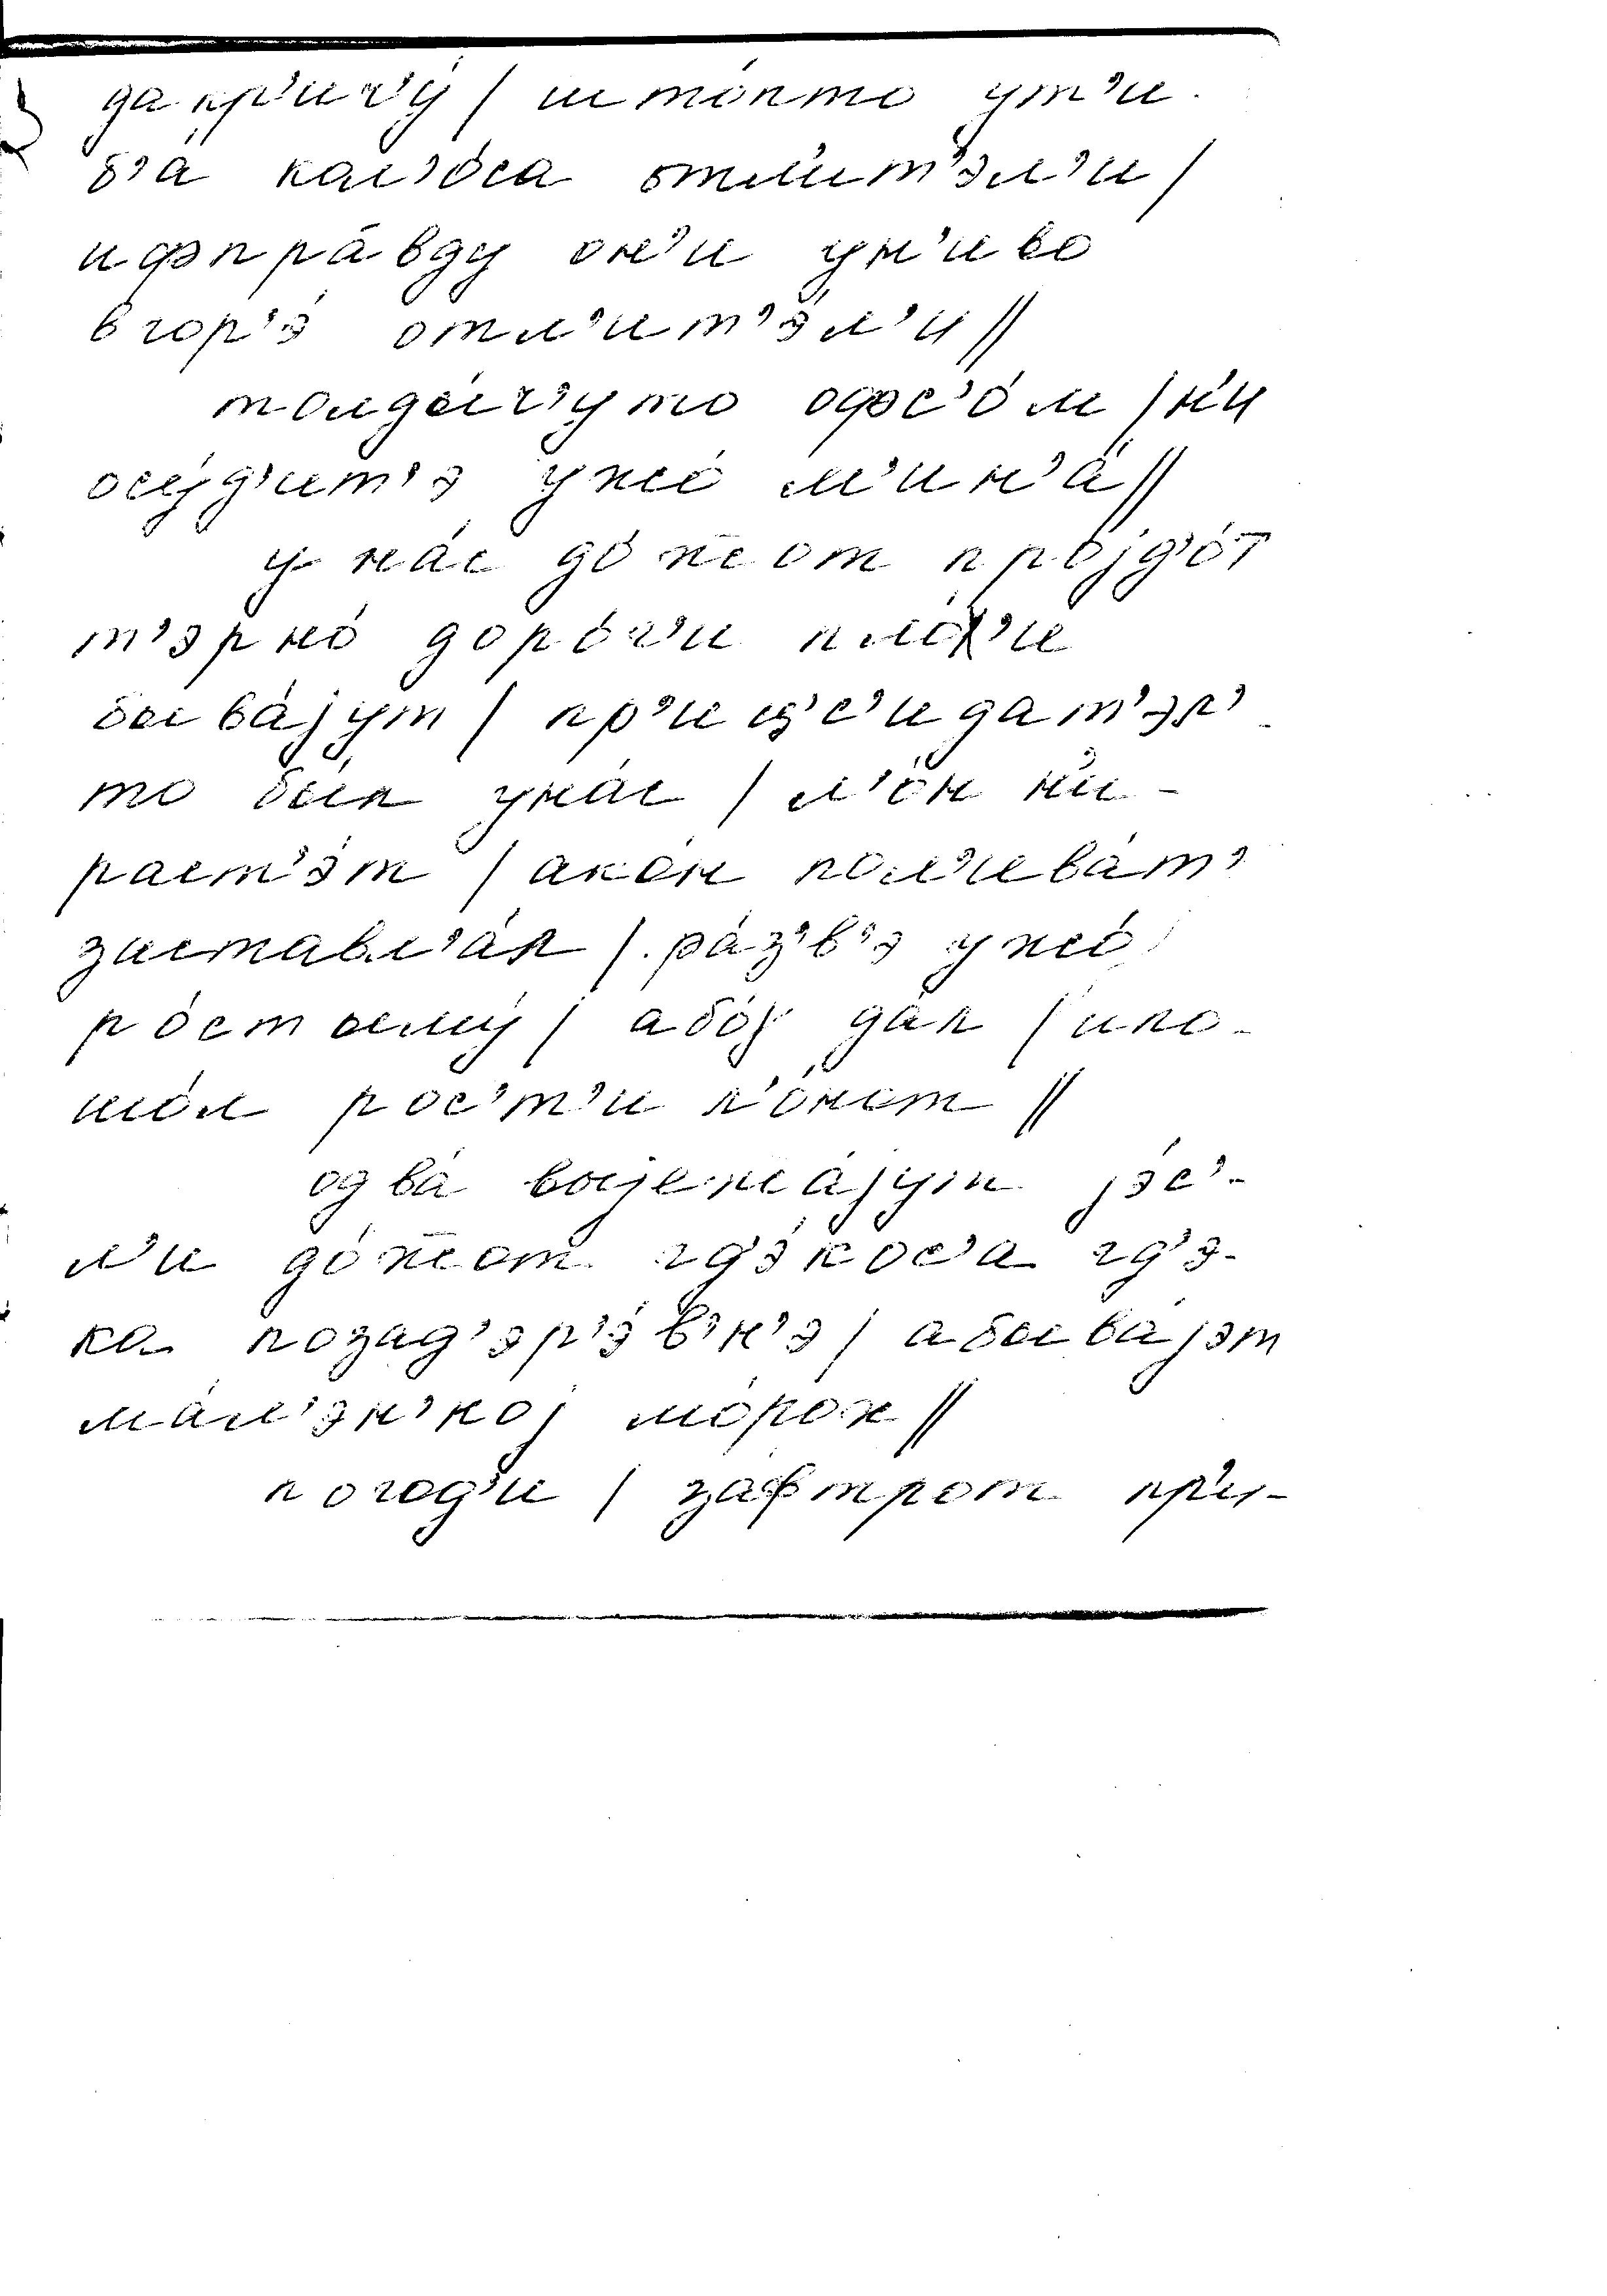 да кр'ич'у́ / штопто ут'и-
б'а́ кал'о́са отл'ит'э́л'и /
и фпра́вду он'и ун'иво
вгор'э́ отл'ит'э́л'и //
толда́ч'уто офс'о́м / н'и
осу́д'ит'э ужо́ м'ин'а́ //
у на́с до́жот про́јд'о́т
т'эрно́ доро́г'и пло́х'и
быва́јут / пр'ице'идат'эл'-
то был уна́с / л'о́н н'и-
раст'э́т / ако́н пол'ива́т'
заставл'а́л / ра́з'в'э ужо́
ро́с тому́ / а бо́х да́л / и по-
шо́л рос'т'и л'о́ност //
одва́ выјежа́јут јэ́с'-
л'и до́жот гд'э́кос'а гд'э-
ка позад'эр'э́в'н'э / а быва́јэт
ма́л'эн'кој мо́рок //
погод'и / за́фтрот пр'и-